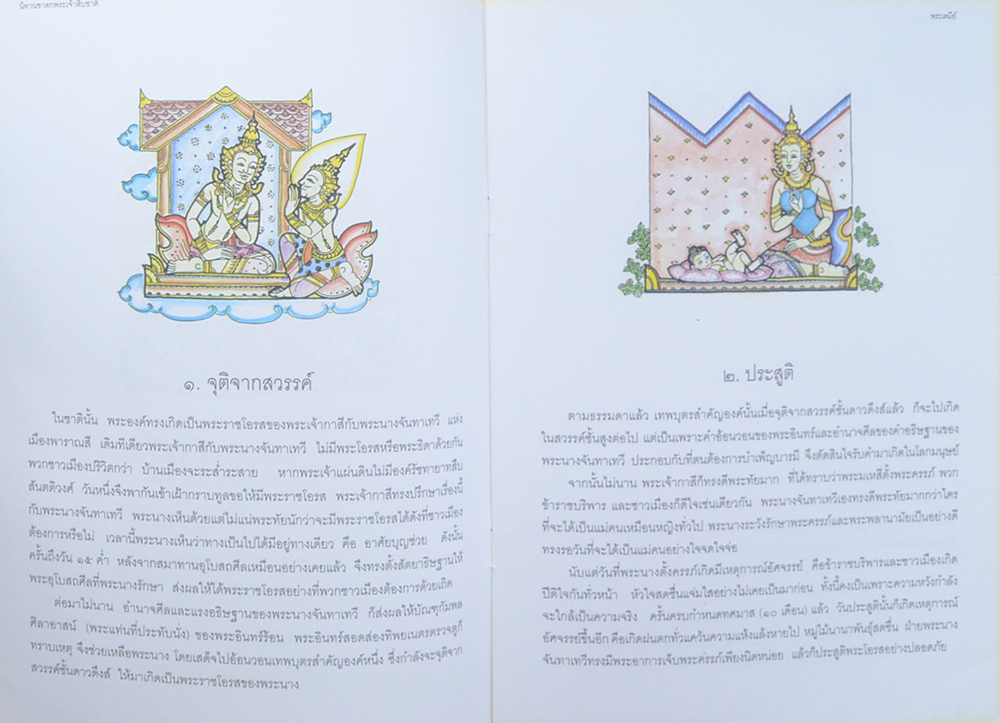 นิทานชาดกพระเจ้าสิบชาติ
๑. จุติจากสวรรค์
ในชาตินั้น พระองค์ทรงเกิดเป็นพระราชโอรสของพระเจ้ากาสีกับพระนางจันทาเทวี แห่ง
เมืองพาราณสี เดิมทีเดียวพระเจ้ากาสีกับพระนางจันทาเทวี ไม่มีพระโอรสหรือพระธิดาด้วยกัน
พวกชาวเมืองปริวิตกว่า บ้านเมืองจะระส่ำระสาย หากพระเจ้าแผ่นดินไม่มีองค์รัชทายาทสืบ
สันตติวงศ์ วันหนึ่งจึงพากันเข้าเฝ้ากราบทูลขอให้มีพระราชโอรส พระเจ้ากาสีทรงปรึกษาเรื่องนี้
กับพระนางจันทาเทวี พระนางเห็นด้วยแต่ไม่แน่พระทัยนักว่าจะมีพระราชโอรสได้ดังที่ชาวเมือง
ต้องการหรือไม่ เวลานี้พระนางเห็นว่าทางเป็นไปได้มีอยู่ทางเดียว คือ อาศัยบุญช่วย ดังนั้น
ครั้นถึงวัน ๑๕ ค่ำ หลังจากสมาทานอุโบสถศีลเหมือนอย่างเคยแล้ว จึงทรงตั้งสัตยาธิษฐานให้
พระอุโบสถศีลที่พระนางรักษา ส่งผลให้ได้พระราชโอรสอย่างที่พวกชาวเมืองต้องการด้วยเถิด
ต่อมาไม่นาน อำนาจศีลและแรงอธิษฐานของพระนางจันทาเทวี ก็ส่งผลให้บัณฑุกัมพล
ศิลาอาสน์ (พระแท่นที่ประทับนั่ง) ของพระอินทร์ร้อน พระอินทร์สอดส่องทิพยเนตรตรวจดูก็
ทราบเหตุ จึงช่วยเหลือพระนาง โดยเสด็จไปอ้อนวอนเทพบุตรสำคัญองค์หนึ่ง ซึ่งกำลังจะจุติจาก
สวรรค์ชั้นดาวดึงส์ ให้มาเกิดเป็นพระราชโอรสของพระนาง
พระเตมีย์
๒. ประสูติ
ตามธรรมดาแล้ว เทพบุตรสำคัญองค์นั้นเมื่อจุติจากสวรรค์ชั้นดาวดึงส์แล้ว ก็จะไปเกิด
ในสวรรค์ชั้นสูงต่อไป แต่เป็นเพราะคำอ้อนวอนของพระอินทร์และอำนาจศีลของคำอธิษฐานของ
พระนางจันทาเทวี ประกอบกับที่ตนต้องการบำเพ็ญบารมี จึงตัดสินใจรับคำมาเกิดในโลกมนุษย์
จากนั้นไม่นาน พระเจ้ากาสีก็ทรงดีพระทัยมาก ที่ได้ทราบว่าพระมเหสีตั้งพระครรภ์ พวก
ข้าราชบริพาร และชาวเมืองก็ดีใจเช่นเดียวกัน พระนางจันทาเทวีเองทรงดีพระทัยมากกว่าใคร
ที่จะได้เป็นแม่คนเหมือนหญิงทั่วไป พระนางระวังรักษาพระครรภ์และพระพลานามัยเป็นอย่างดี
ทรงรอวันที่จะได้เป็นแม่คนอย่างใจจดใจจ่อ
นับแต่วันที่พระนางตั้งครรภ์เกิดมีเหตุการณ์อัศจรรย์ คือข้าราชบริพารและชาวเมืองเกิด
ปีติใจกันทั่วหน้า หัวใจสดชื่นแจ่มใสอย่างไม่เคยเป็นมาก่อน ทั้งนี้คงเป็นเพราะความหวังกำลัง
จะใกล้เป็นความจริง ครั้นครบกำหนดทศมาส (๑๐ เดือน) แล้ว วันประสูตินั้นก็เกิดเหตุการณ์
อัศจรรย์ขึ้นอีก คือเกิดฝนตกทั่วแคว้นความแห้งแล้งหายไป หมู่ไม้นานาพันธุ์สดชื่น ฝ่ายพระนาง
จันทาเทวีทรงมีพระอาการเจ็บพระครรภ์เพียงนิดหน่อย แล้วก็ประสูติพระโอรสอย่างปลอดภัย